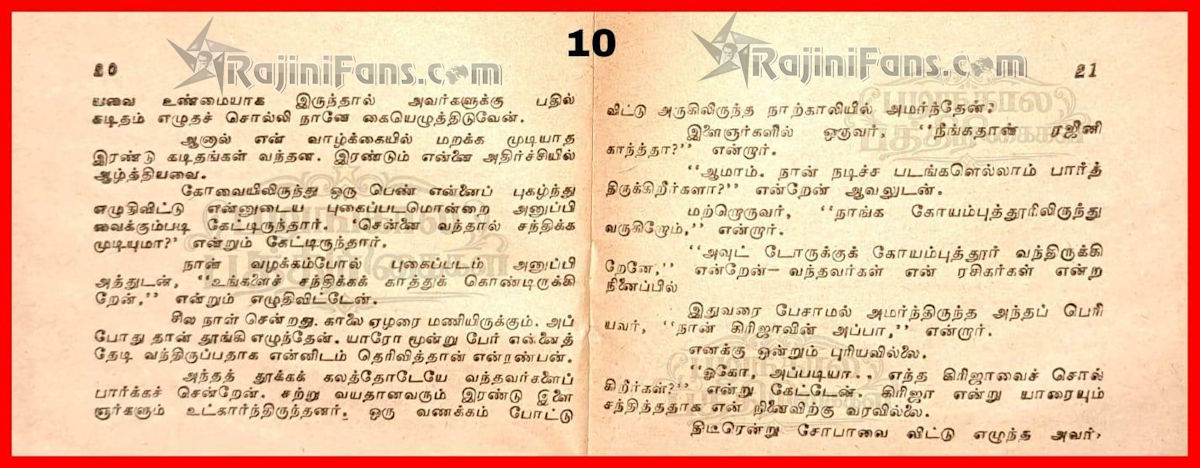 10
RajiniFans.com
RajiniFans.com
20
யவை உண்மையாக இருந்தால் அவர்களுக்கு பதில்
கடிதம் எழுதச் சொல்லி நானே கையெழுத்திடுவேன்.
ஆனால் என் வாழ்க்கையில் மறக்க முடியாத
இரண்டு கடிதங்கள் வந்தன. இரண்டும் என்னை அதிர்ச்சியில்
ஆழ்த்தியவை.
கோவையிலிருந்து ஒரு பெண் என்னைப் புகழ்ந்து
எழுதிவிட்டு என்னுடைய புகைப்படமொன்றை அனுப்பி
வைக்கும்படி கேட்டிருந்தார். 'சென்னை வந்தால் சந்திக்க
முடியுமா?' என்றும் கேட்டிருந்தார்.
நான் வழக்கம்போல் புகைப்படம் அனுப்பி
அத்துடன், "உங்களைச் சந்திக்கக் காத்துக் கொண்டிருக்கி
றேன்," என்றும் எழுதிவிட்டேன்.
சில நாள் சென்றது. காலை ஏழரை மணியிருக்கும். அப்
போது தான் தூங்கி எழுந்தேன். யாரோ மூன்று பேர் என்னைத்
தேடி வந்திருப்பதாக என்னிடம் தெரிவித்தான் என்நண்பன்.
அந்தத் தூக்கக் கலத்தோடேயே வந்தவர்களைப்
பார்க்கச் சென்றேன். சற்று வயதானவரும் இரண்டு இளை
ஞர்களும் உட்கார்ந்திருந்தனர். ஒரு வணக்கம் போட்டு
21
விட்டு அருகிலிருந்த நாற்காலியில் அமர்ந்தேன்?
இளைஞர்களில் ஒருவர், "நீங்கதான் ரஜினி
காந்த்தா?" என்றார்.
"ஆமாம். நான் நடிச்ச படங்களெல்லாம் பார்த்
திருக்கிறீர்களா?" என்றேன் ஆவலுடன்.
மற்றொருவர், "நாங்க கோயம்புத்தூரிலிருந்து
வருகிறோம்," என்றார்.
"அவுட் டோருக்குக் கோயம்புத்தூர் வந்திருக்கி
றேனே," என்றேன்— வந்தவர்கள் என் ரசிகர்கள் என்ற
நினைப்பில்
இதுவரை பேசாமல் அமர்ந்திருந்த அந்தப் பெரி
யவர், "நான் கிரிஜாவின் அப்பா," என்றார்.
எனக்கு ஒன்றும் புரியவில்லை.
"ஓகோ, அப்படியா.. எந்த கிரிஜாவைச் சொல்
கிறீர்கள்?" என்று கேட்டேன். கிரிஜா என்று யாரையும்
சந்தித்ததாக என் நினைவிற்கு வரவில்லை.
திடீரென்று சோபாவை விட்டு எழுந்த அவர்,